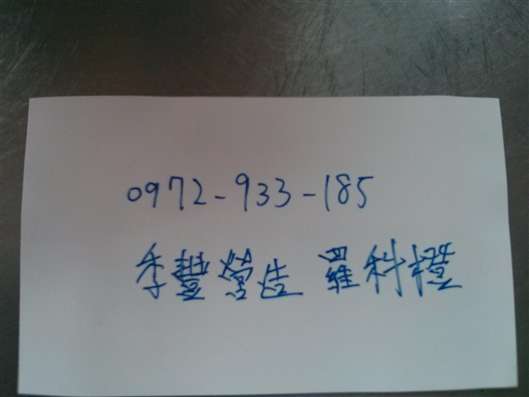 0972-933-185
季豐營造 羅科橙